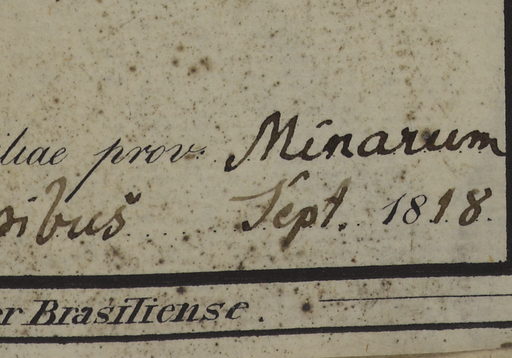 iliae prov. Minarum
nibus Sept. 1818.
er Brasiliense.